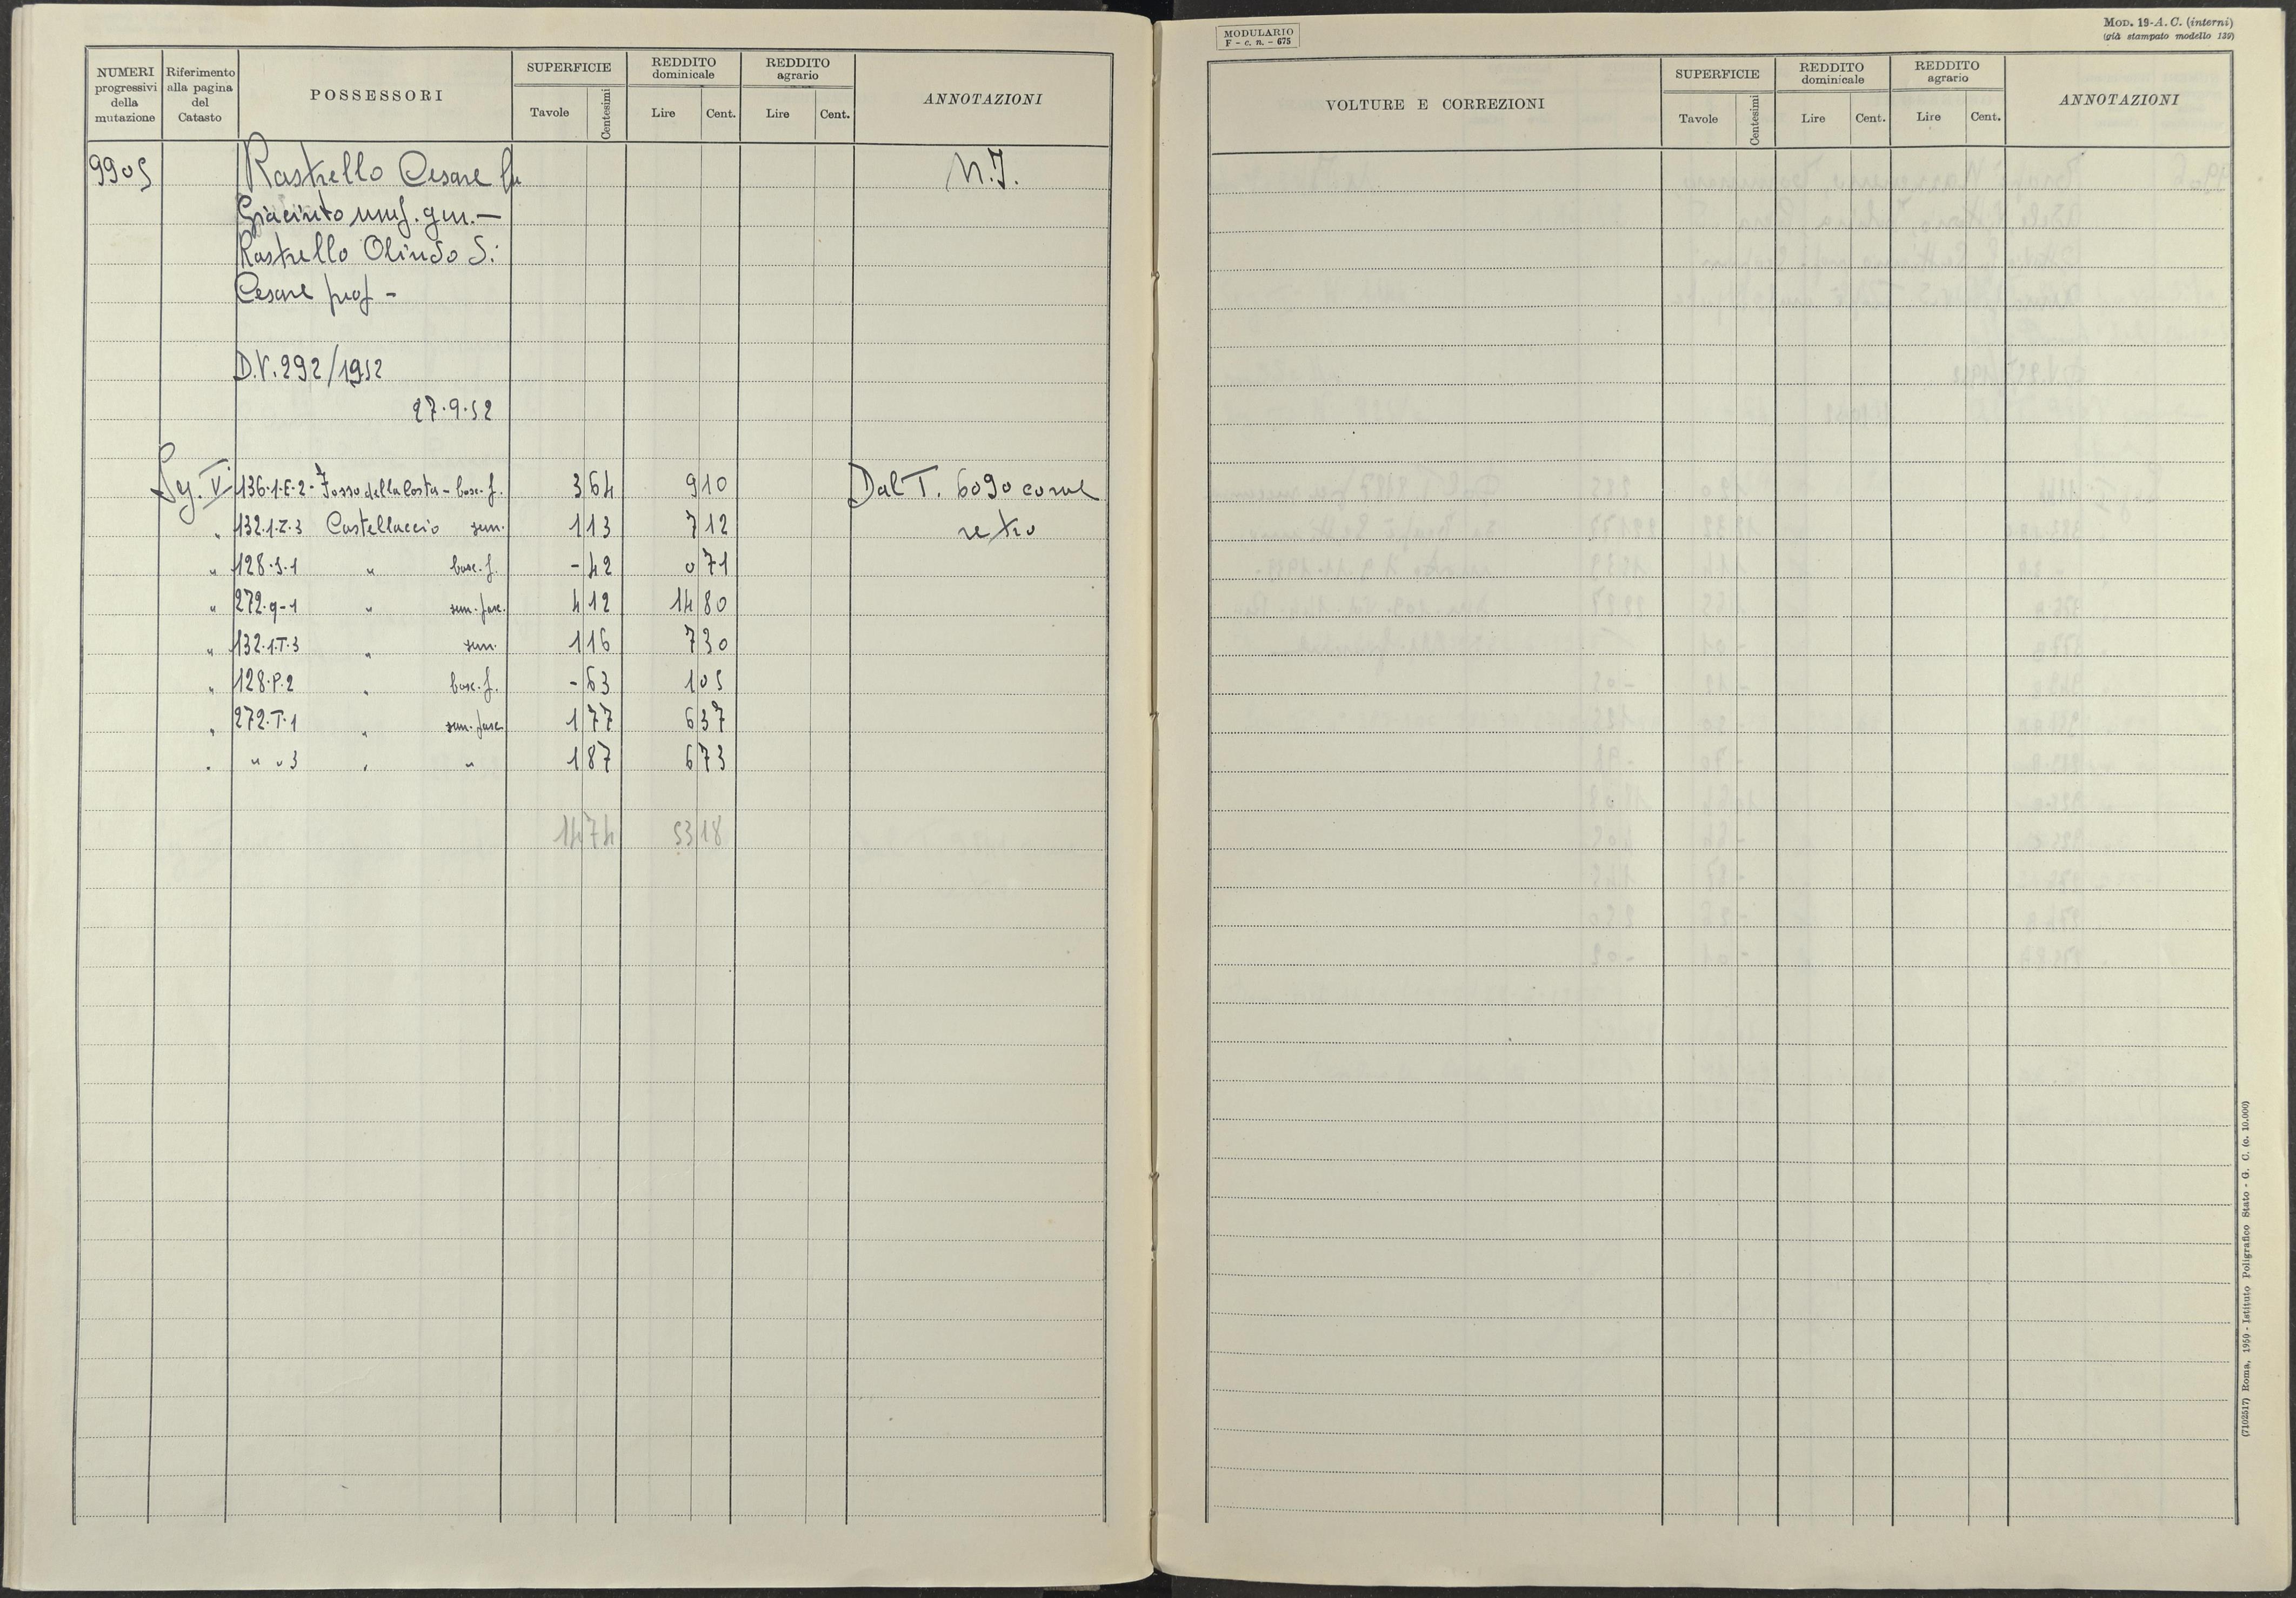 NUMERI
progressivi
della
mutazione
Riferimento
alla pagina
del
Catasto
POSSESSORI
SUPERFICIE
Tavole
Centesimi
REDDITO
dominicale
Lire
Cent.
REDDITO
agrario
Lire
Cent.
ANNOTAZIONI
9905 Rastrello Cesare fu N.I.
Giacinto usuf. gen. -
Rastrello Olindo di
Cesare prop -
D.V. 292/1952
27.9.52
Seg. V 136.1.E.2 - Fosso della Costa - bosc. f. 3 64 9 10 Dal T. 6090 come
" 132.1.Z.3 Castellaccio sem. 1 13 7 12 retro
" 128.S.1 " bosc. f. - 42 0 71
" 272.q-1 " sem. fasc. 4 12 14 80
" 132.1.T.3 " sem. 1 16 7 30
" 128.P.2 " bosc. f. - 63 1 05
" 272.T.1 " sem. fasc. 1 77 6 37
" " " 3 " " 1 87 6 73
14 74 53 18
MODULARIO
F - c. n. - 675
MOD. 19-A. C. (interni)
(già stampato modello 139)
VOLTURE E CORREZIONI
SUPERFICIE
Tavole
Centesimi
REDDITO
dominicale
Lire
Cent.
REDDITO
agrario
Lire
Cent.
ANNOTAZIONI
(7102517) Roma, 1950 - Istituto Poligrafico Stato - G. C. (c. 10.000)